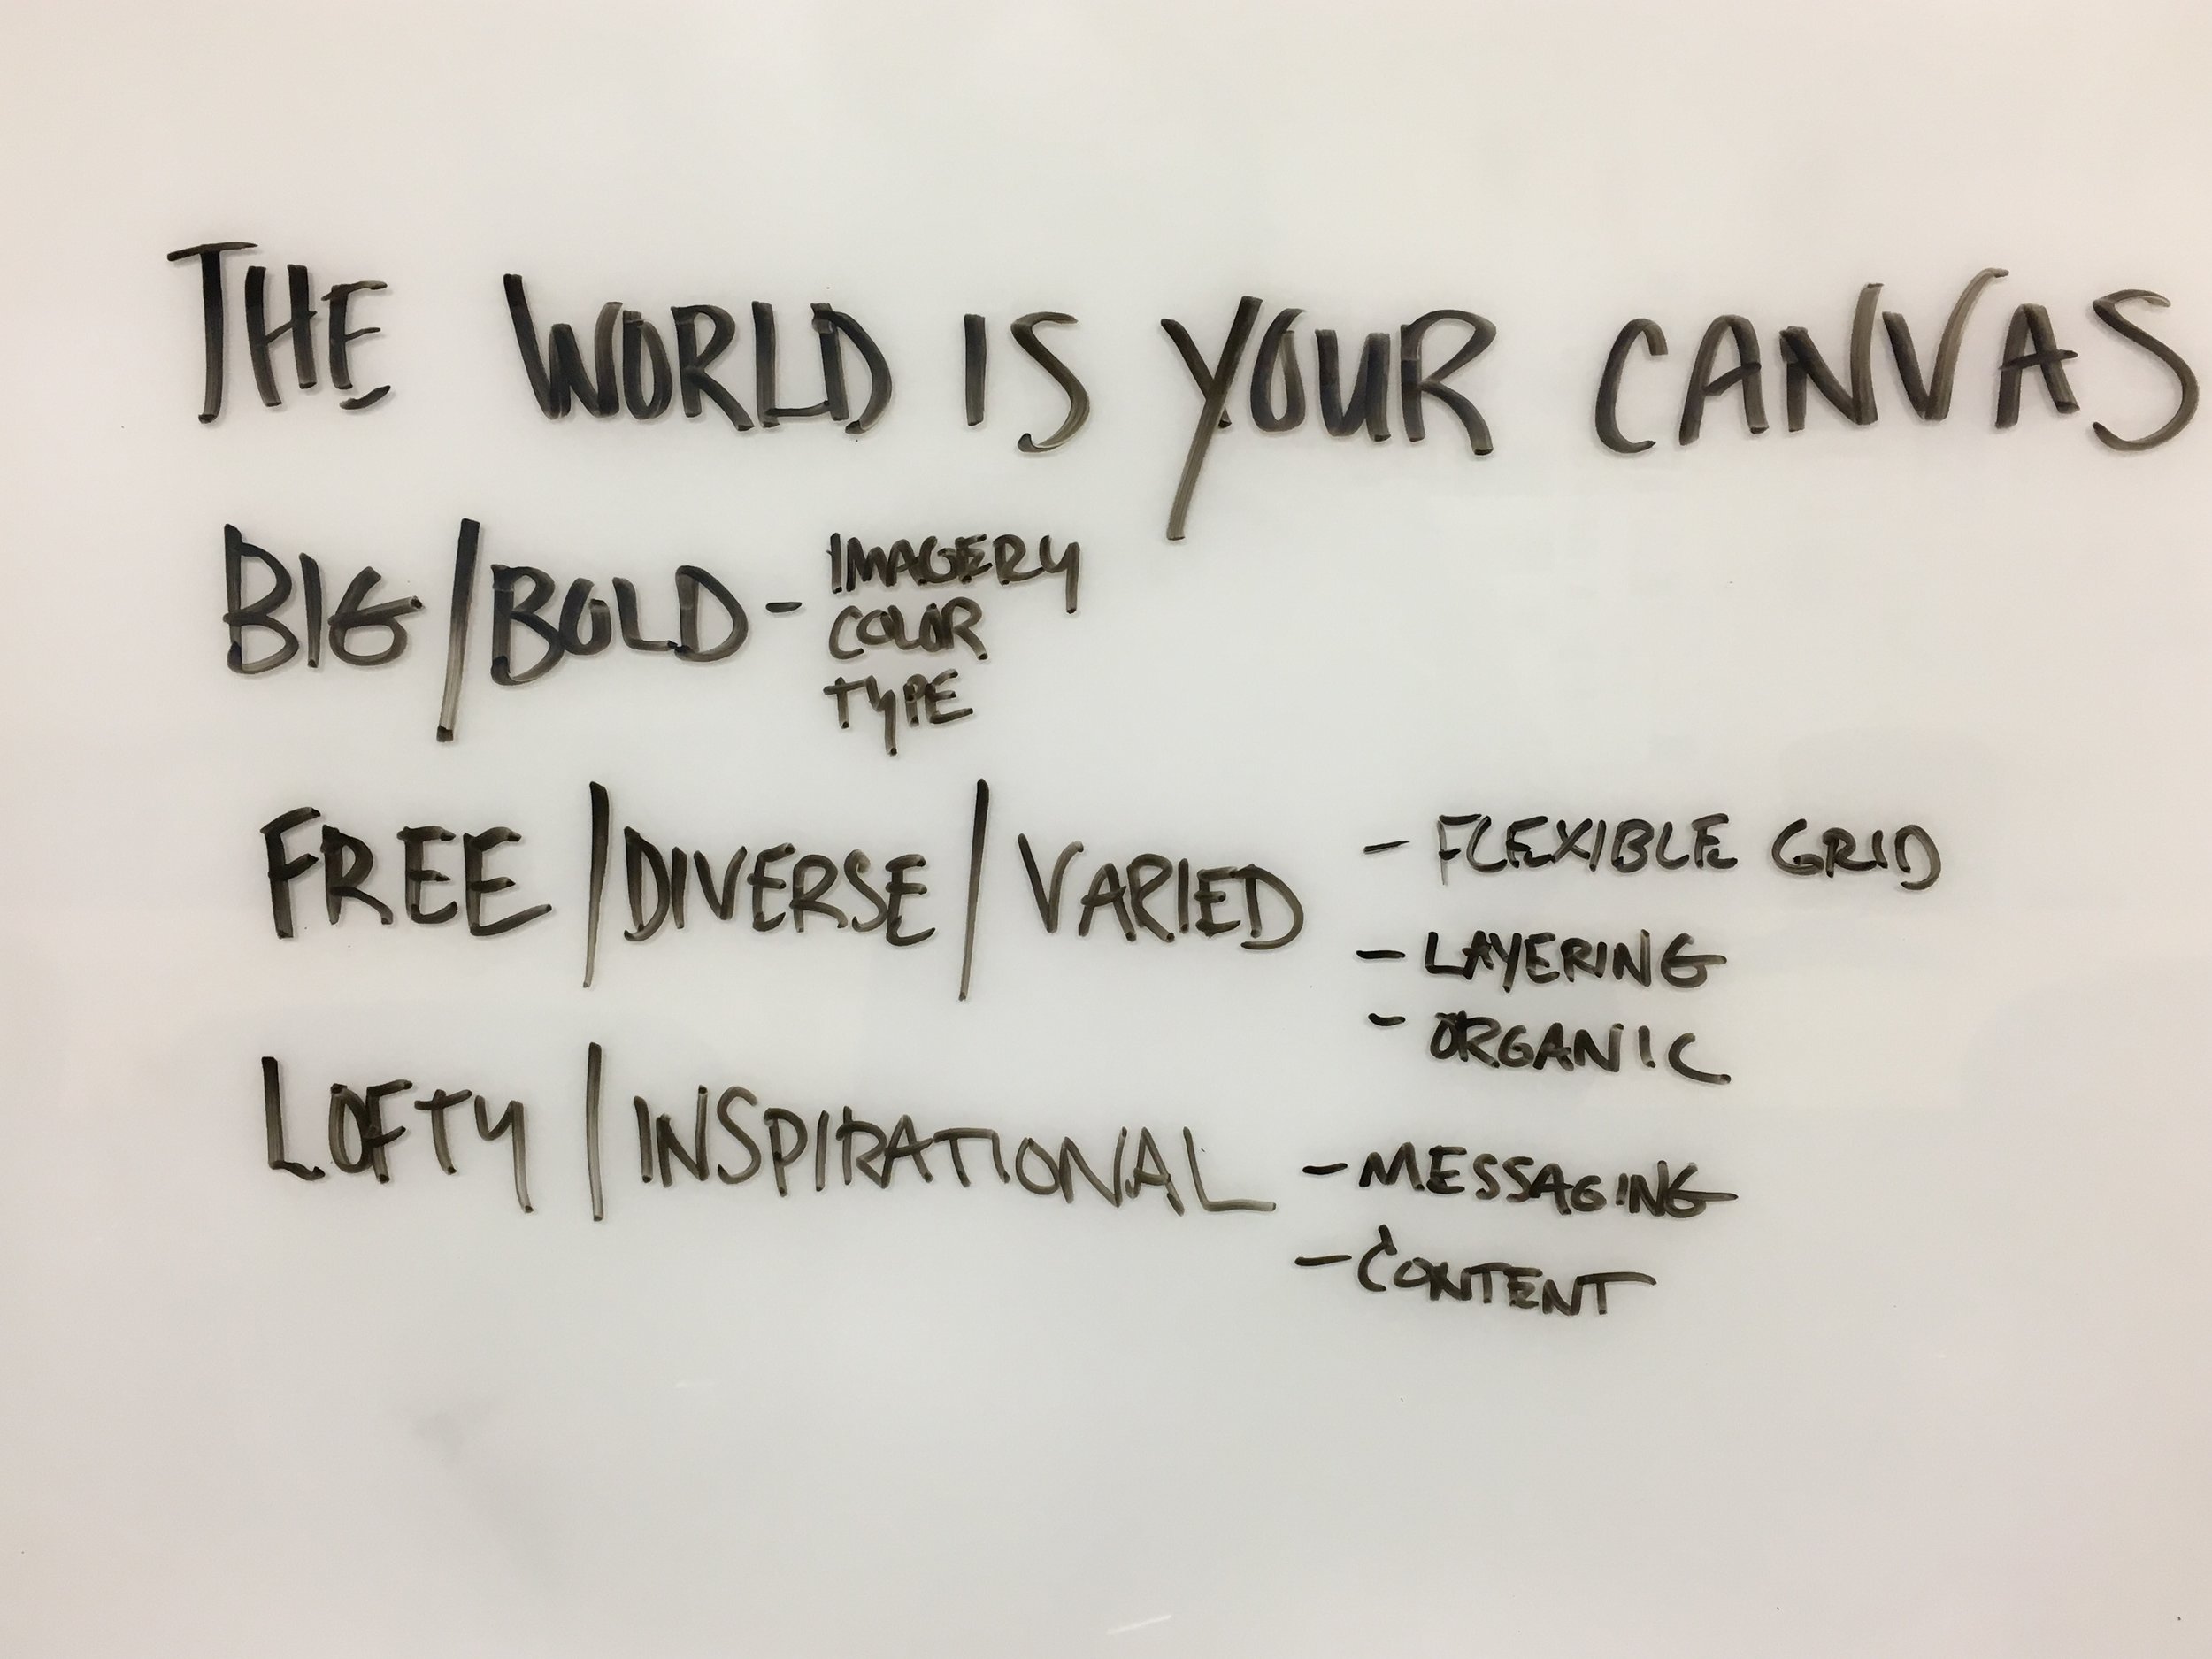 THE WORLD IS YOUR CANVAS
BIG/BOLD - IMAGERY
COLOR
TYPE
FREE/DIVERSE/VARIED - FLEXIBLE GRID
- LAYERING
- ORGANIC
LOFTY/INSPIRATIONAL - MESSAGING
- CONTENT